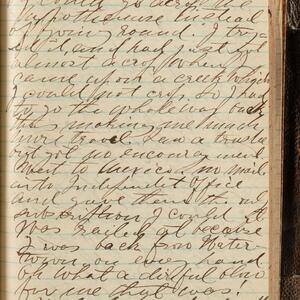 hypothenuse instead
of going round. I try
it, and had just got
almost across when I
came upon a creek which
I could not cross, so I had
to go the whole way back
thus making me much
more travel. Saw a trustee
but got no encouragement
Went to Mexico no mail
into Independent Office
and gave them the only
subscription I could get
Was railed at because
I was back from Water-
town on every hand
oh what a dreadful blow
for me that was!